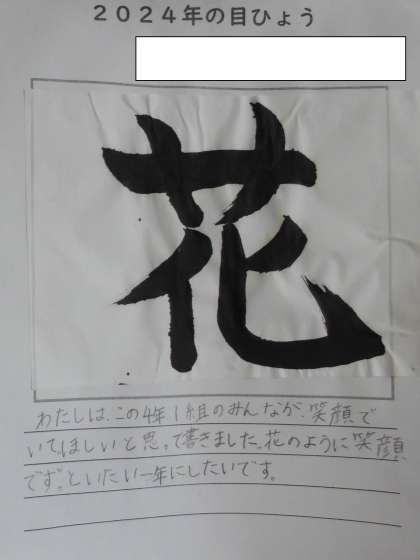 ２０２４年の目ひょう
花
わたしは、この4年1組のみんなが、笑顔で
いてほしいと思って書きました。花のように笑顔
です。といたい一年にしたいです。